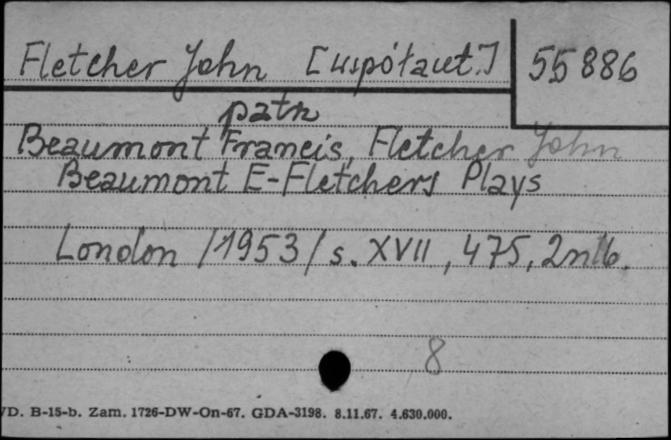 Fletcher John [współaut.] 55886
patrz
Beaumont Francis, Fletcher John
Beaumont E-Fletchers Plays
London /1953/ s. XVII, 475, 2nlb.
8
/D. B-15-b. Zam. 1726-DW-On-67. GDA-3198. 8.11.67. 4.630.000.